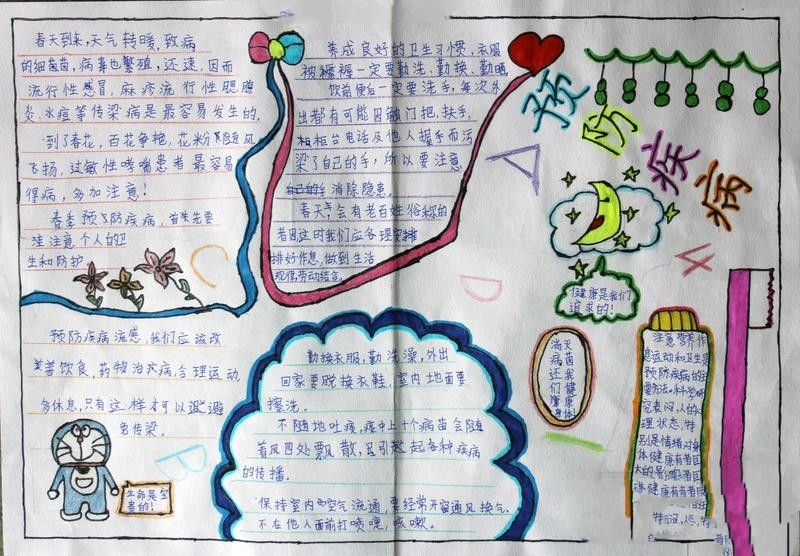 预防疾病
春天到来,天气转暖,致病
的细菌菌,病毒也繁殖,还速,因而
流行性感冒,麻疹流行性腮腺
炎.水痘等传梁病是最容易发生的,
到了春花,百花争艳,花粉随风
飞扬,过敏性哮喘患者最容易
得病,多加注意!
春季预防疾病,首先要
注意个人的卫
生和防护
养成良好的卫生习惯,衣服
被褥裤一定要勤洗、勤换、勤晒,
饮前便后一定要洗手,每次外
出都有可能因触门把,扶手,
柜台电话及他人握手而污
梁了自己的手,所以要注意
自己的手消除隐患.
春天,会有老百姓俗称的
排好作息,做到生活
规律劳动结合.
健康是我们
追求的!
预防疾病流感,我们应该改
善饮食,药物治疾病,合理运动,
多休息,只有这样才可以避
免传梁.
生命是宝
贵的!
勤换衣服,勤洗澡,外出
回家要脱换衣鞋,室内地面要
擦洗.
不随地吐痰,痰中上十个病苗会随
着风四处飘散,且引起各种疾病
的传播.
保持室内空气流通,要经常开窗通风换气.
不在他人面前打喷嚏,咳嗽.
满天
病菌
还我
们健
康
身体!
注意营养作
息运动和卫生是
预防疾病的
理状态,特
别是情绪对身
体健康有着
大的影响